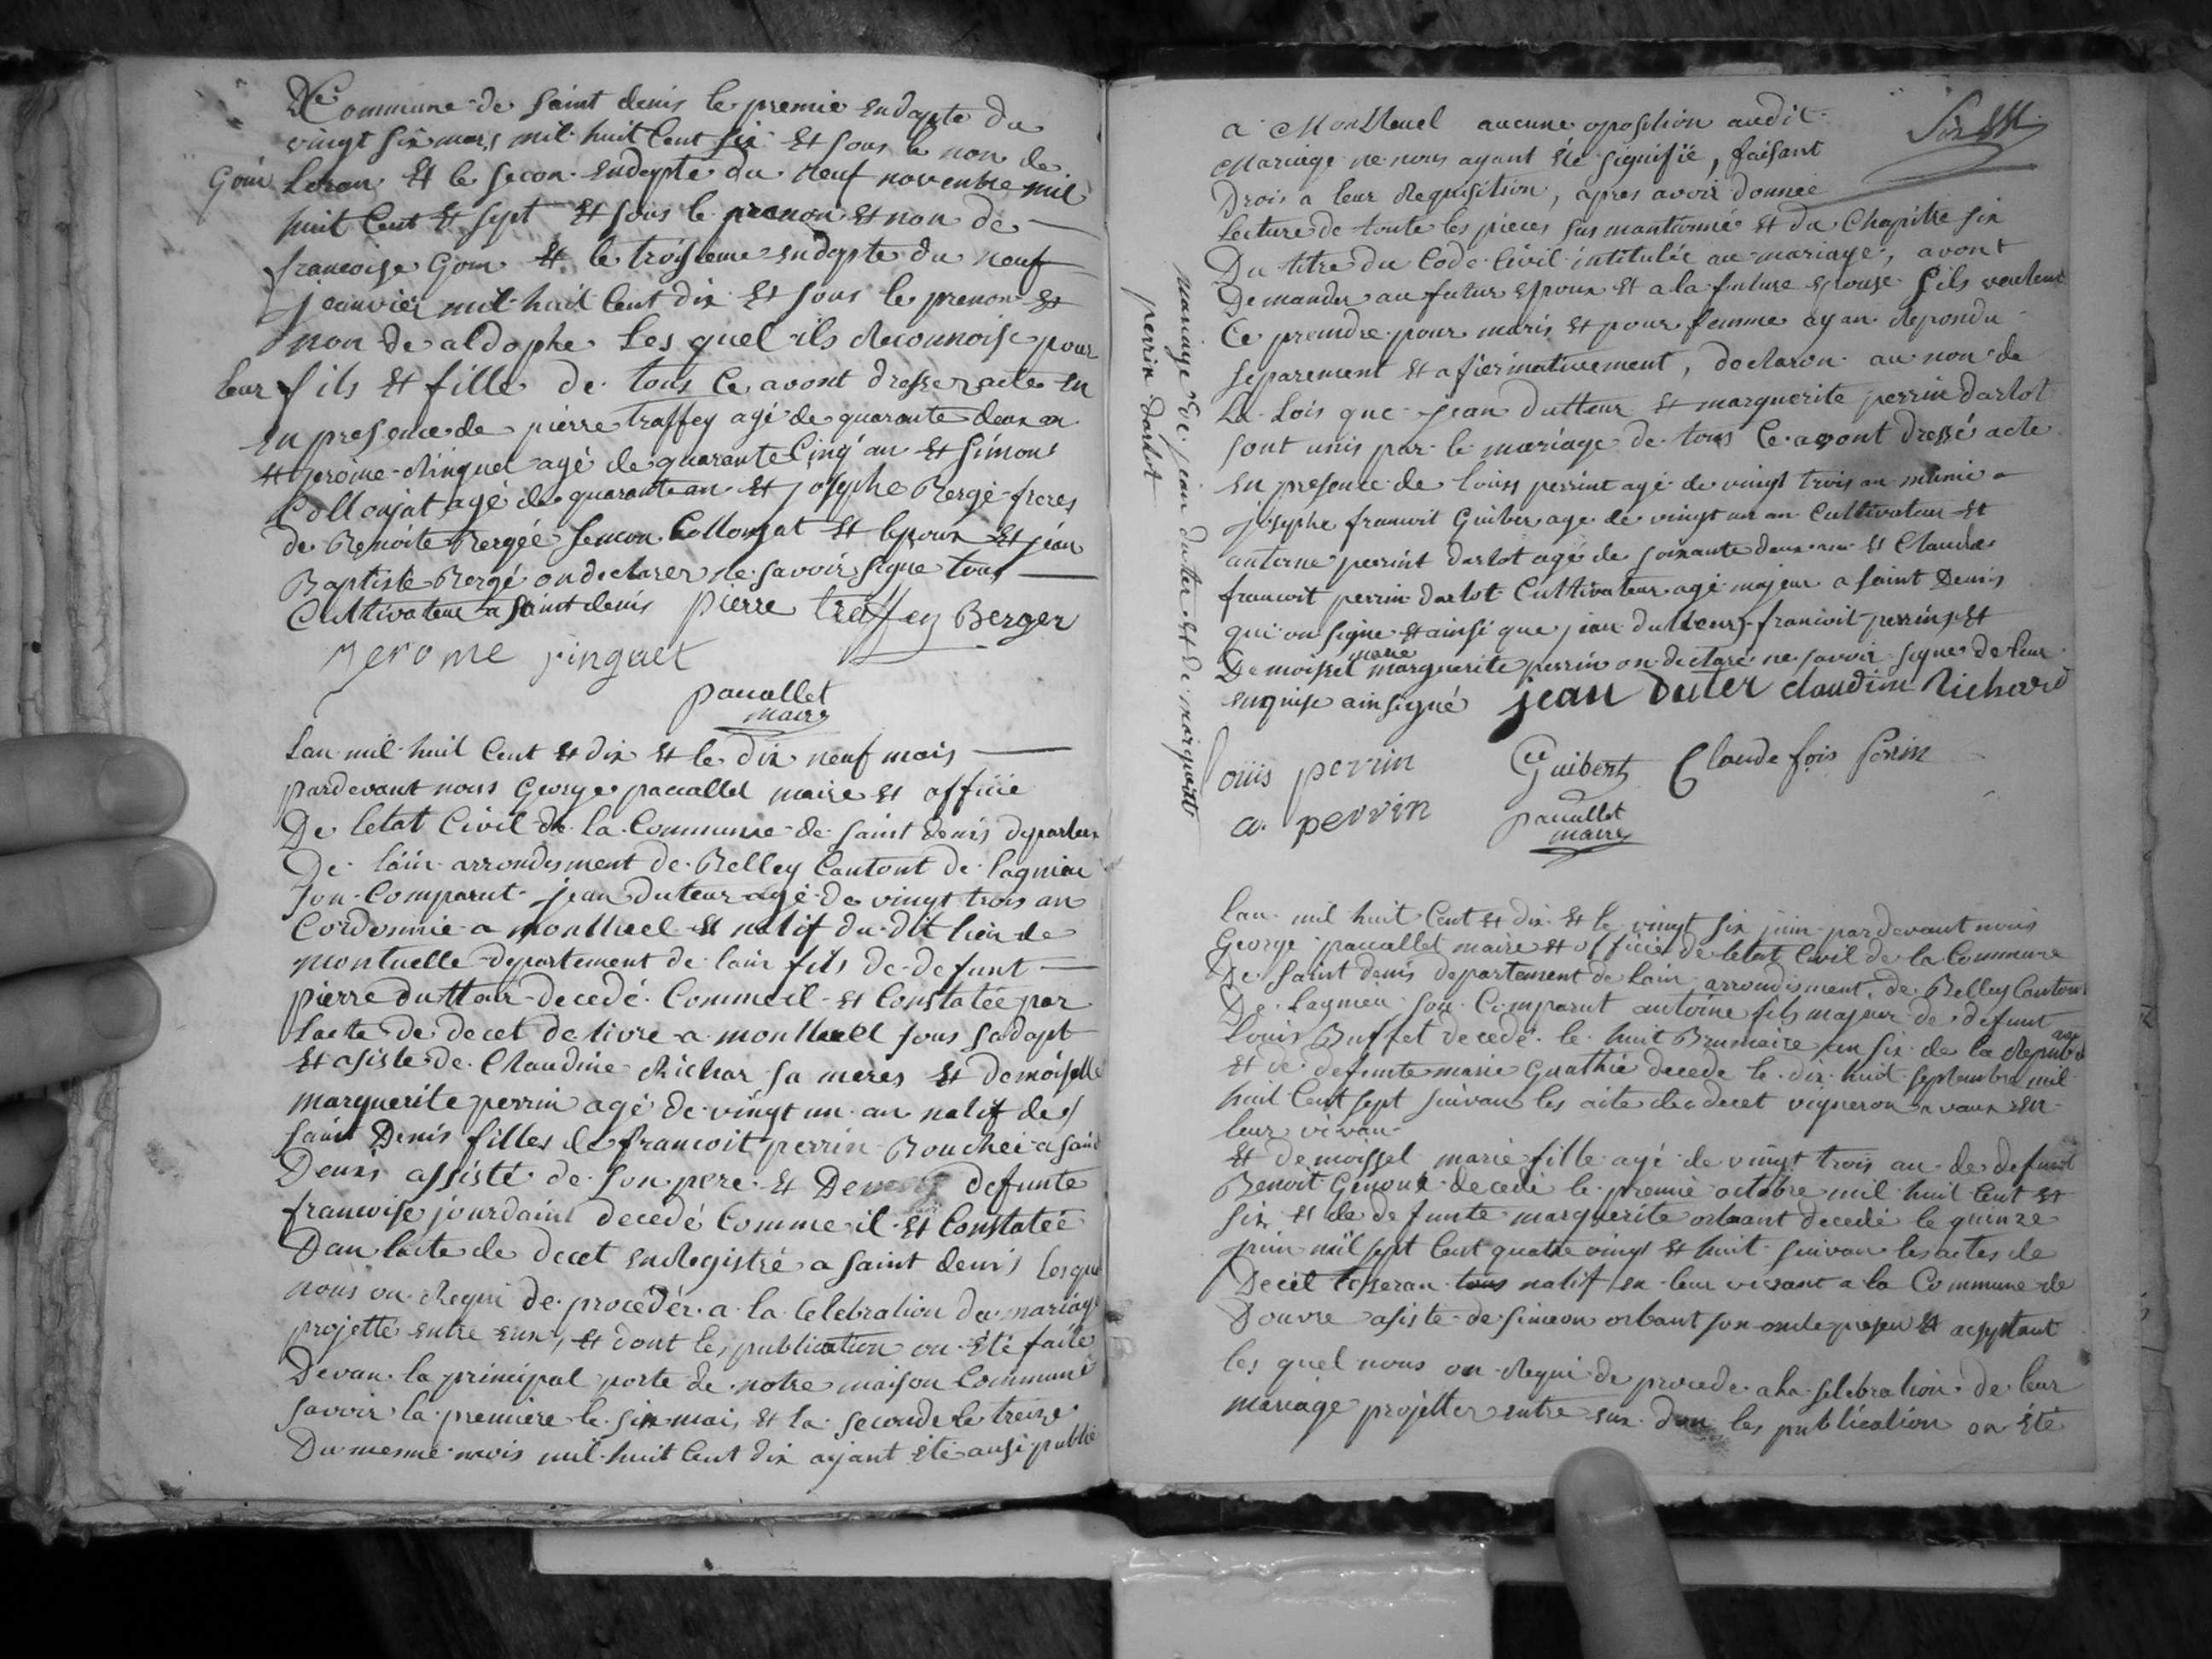 De Commune de saint denis le premie endapte du
vingt six mars mil huit Cent six Et sous le non de
Goin Loran Et le secon endapte du neuf novenbre mil
huit Cent Et sept Et sous le prenon Et non de
francoise Goin Et le troisieme endapte du neuf
jeanvier mil huit Cent dix Et sous le prenon Et
non de aldophe Les quel ils Reconnoise pour
leur fils Et fille de tous Ce avont dresse acte en
en presence de pierre traffey agé de quarante deux an
Et jerome Ringuet agé de quarante Cinq an Et Simon
Collonjat agé de quarante an Et josephe Bergé freres
de Benoite Bergée Collonjat Et Et jean
Baptiste Bergé on declarer ne savoir signe tous
Cultivateur a saint denis pierre treffey Berger
Jerome pinguet
pacallet
maire
Lan mil huit Cent Et dix Et le dix neuf mais
pardevant nous George pacallet maire Et officié
De letat Civil de la Commune de saint denis departem
De lain arrondisment de Belley Cantont de lagnieu
son Comparut jean duteur agé de vingt trois an
Cordonnie a montluel Et natif du dit lieu de
montuelle departement de lain fils de defunt
pierre duttair decedé Comme il Et Constatée par
lacte de decet de livre a montluell sous sa dapt
Et asiste de Claudine Richar sa meres Et demoiselle
marguerite perrin agé de vingt un an natif de
saint Denis filles de francoit perrin Bouchei a saint
Denis assisté de son pere Et De defunte
francoise jourdaint decedé Comme il Et Constatée
Dan lacte de decet enRegistré a saint denis Lesque
nous on Requi de procédér a la Celebration du mariage
projetté entre eux, Et dont les publication on été faite
Devan la principal porte de notre maison Commune
savoir la premiere le six mai Et la seconde le treize
Du mesme mois mil huit Cent dix ayant été ausi publié
a Montluel aucune oposition audit
Mariage ne nous ayant été signifié, faisant
Drois a leur Requisition, apres avoir donnée
Lecture de toute les pieces sus mantionné Et du Chapitre six
Du titre du Code Civil intitulée au mariage, avont
Demander au futur Epoux Et a la future Epouse s'ils veulent
Ce prendre pour maris Et pour femme ayan Repondu
separement Et afiermativement, declaron au non de
La Lois que jean dutteur Et marguerite perrin darlot
sont unis par le mariage de tous Ce avont dressé acte
en presence de louiss perrint agé de vingt trois an
josephe francoit Guiber age de vingt un an Cultivateur Et
antoine perrint darlot agé de soixante deux an Et Claude
francoit perrin darlot Cultivateur agé majeur a saint Denis
qui on signe Et ainsi que jean dutteur francoit perrin Et
marie
Demoissel marguerite perrin on declaré ne savoir signe de leur
enquise ainsigné jean Duter claudine Richard
louis perrin Guibert Claude fois perrin
a. perrin pacallet
maire
mariage de jean duter Et de marguerite
perrin darlot
lan mil huit Cent Et dix Et le vingt six juin pardevant nous
George pacallet maire Et officier de letat Civil de la Commune
De saint denis departement de lain arrondisment de Belley Canton
De Lagnieu son Comparut antoine fils majeur de defunt
Louis Buffet decedé le huit Brumaire an six de la Republi
Et de defunte marie Guathié decede le dix huit septembre mil
huit Cent sept suivan les acte de decet vigneron a vaux en
leur vivan
Et demoissel marie fille agé de vingt trois an de defunt
Benoit Genoux decedé le premié octobre mil huit Cent Et
six Et de defunte marguerite orbant decedé le quinze
juin mil sept Cent quatre vingt Et huit suivan les actes de
Decet tisseran tous natif en leur vivant a la Commune de
Douvre asiste de simeon orbant son oncle presen Et acseptant
les quel nous on Requi de procede a la selebration de leur
mariage projetter entre eux don les publication on été